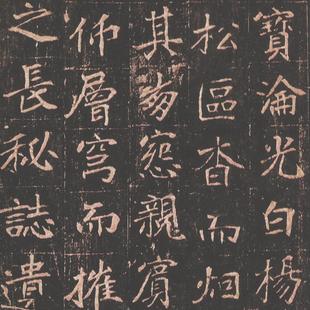 寶淪光白楊
松區杳而烟
其愆親賓
仰層穹而摧
之長秘誌遺